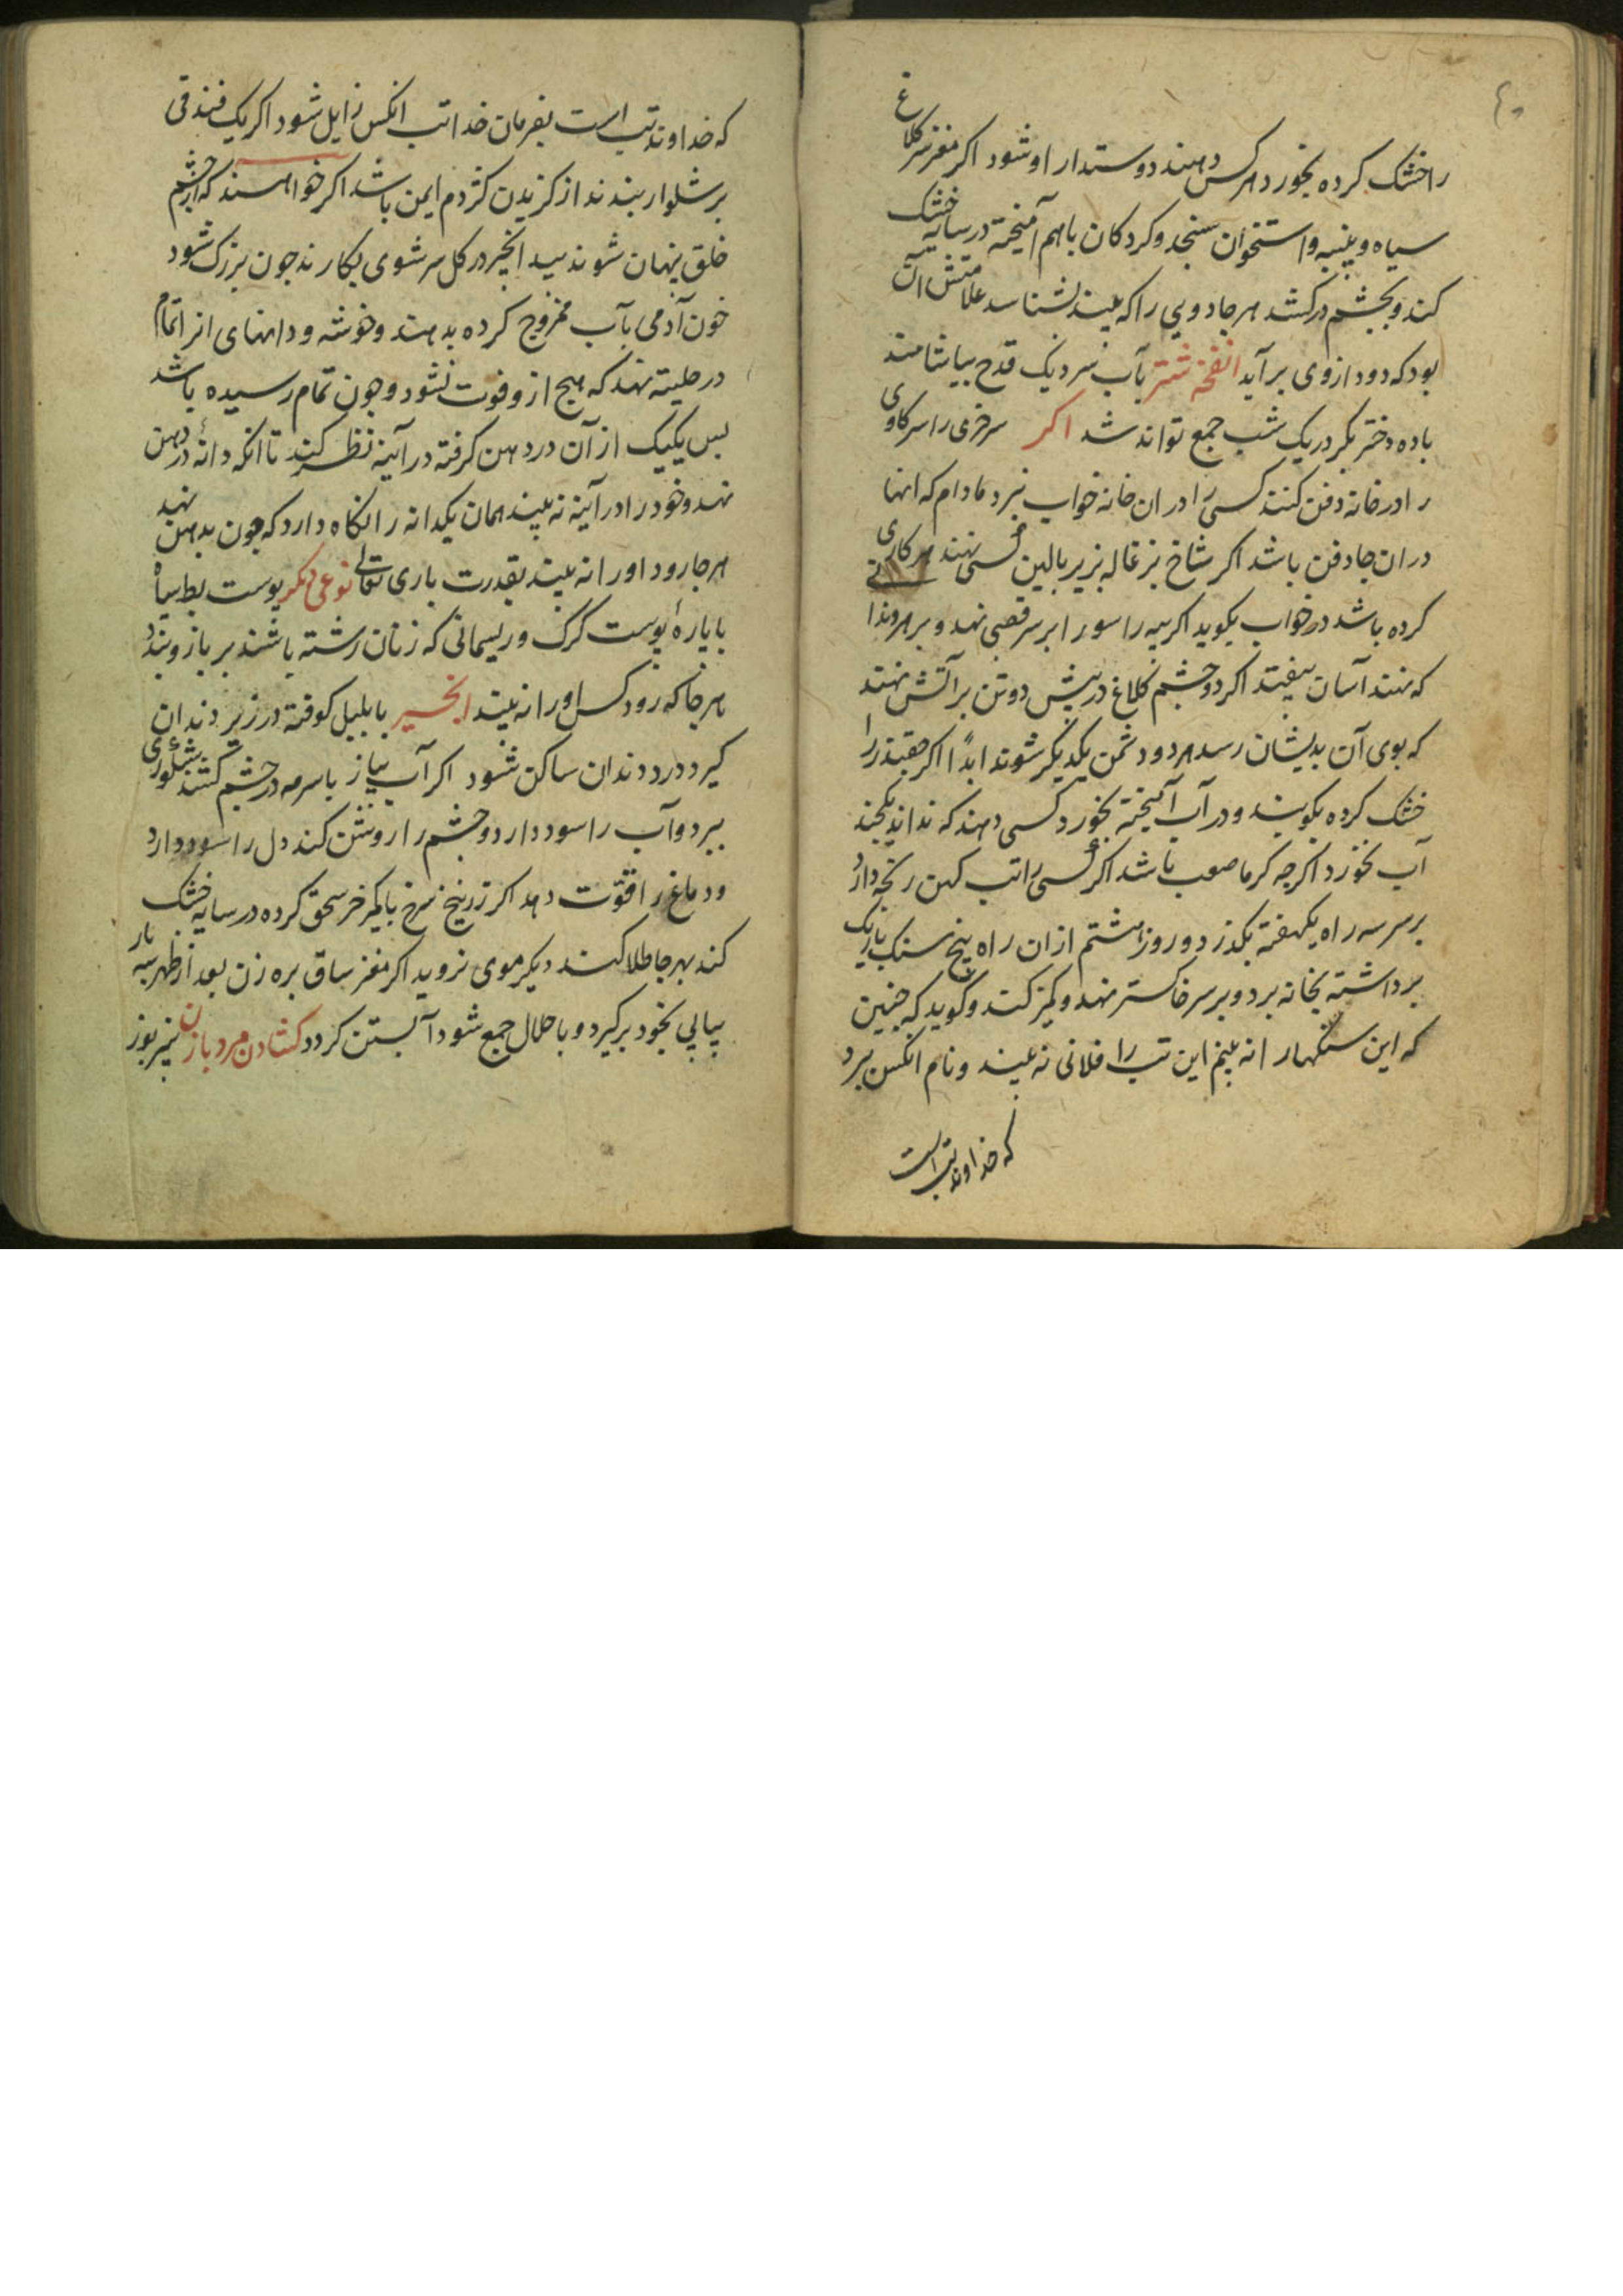 ٤٠
را خشک کرده بخورد هر کس دهند دوستدار او شود اکر مغز سر کلاغ
سیاه و پنبه و استخوان سنجد و کردکان باهم آمیخته در سایه خشک
کند و بچشم درکشد هر جادویی را که بیند بشناسد علامتش آن
بود که دود از وی برآید انفحه شتر بآب سرد یک قدح بیاشامند
با ده دختر بکر در یک شب جمع تواند شد اکر سر خری را سر کاوی
را در خانه دفن کنند کسی را در ان خانه خواب نبرد مادام که انها
در ان جا دفن باشد اکر شاخ بز غاله بزیر بالین کسی نهند هر کاری
کرده باشد در خواب بکوید اکر پیه راسو را بر سر قصبی نهد و بر
که نهند آسان بیفتد اکر دو چشم کلاغ در پیش دو تن بر آتش نهند
که بوی آن بدیشان رسد هر دو دشمن یکدیکر شوند ابدًا اکر چغندر را
خشک کرده بکوبند و در آب آمیخته بخورد کسی دهند که نداند
آب نخورد اکرچه کرما صعب باشد اکر کسی را تب کهن رنجه دارد
بر سر سه راه یکهفته بکذرد و روز هشتم از ان راه پنج سنک باریک
برداشته بخانه برد و بر سر خاکستر نهد و کمیز کند و کوید که چنین
که این سنکهار انه بینم این تب را فلانی نه بیند و نام انکس برد
که خداوند تب است
که خداوند تب است بفرمان خدا تب انکس زایل شود اکر یک فندقی
بر شلوار بندند از کزیدن کژدم ایمن باشد اکر خواهند که از چشم
خلق پنهان شوند بید انجیر در کل سرشوی بکارند چون بزرک شود
خون آدمی بآب ممزوج کرده بدهند و خوشه و دانهای انرا تمام
در نهند که هیچ از و فوت نشود و چون تمام رسیده باشد
پس یکیک از آن در دهن کرفته در آینه نظر کند تا انکه دانهٔ در دهن
نهد و خود را در آینه نه بیند همان یکدانه را نکاه دارد که چون بدهن نهد
هر جا رود او را نه بیند بقدرت باری تعالی نوعی دیکر پوست بط سیاه
با پارهٔ پوست کرک و ریسمانی که زنان رشته باشند بر بازو بندد
هر جا که رود کس او را نه بیند انجیر با پلپل کوفته در زیر دندان
کیرد درد دندان ساکن شود اکر آب پیاز با سرمه در چشم کشند شبکوری
ببرد و آب را سود دارد و چشم را روشن کند دل را سود دارد
و دماغ را قوّت دهد اکر زرنیخ سرخ با کمیز خر سحق کرده در سایه خشک
کند بهر جا طلا کند دیکر موی نروید اکر مغز ساق بره زن بعد از طهر سه بار
پیاپی بخود برکیرد و با حلال جمع شود آبستن کردد کشادن مرد با زن نیز بوز